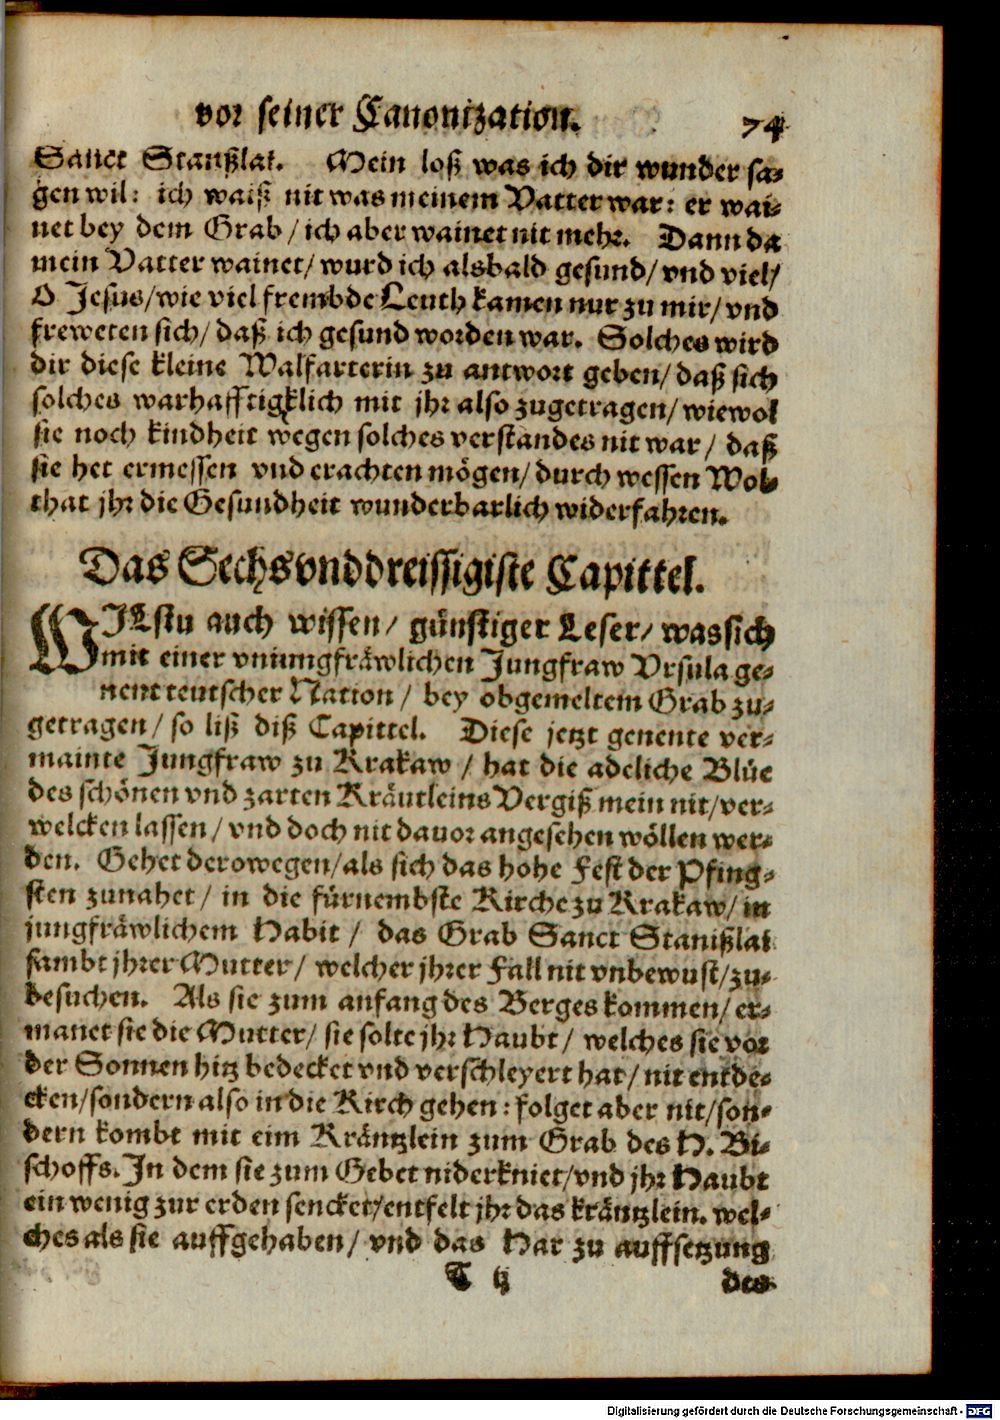 vor seiner Canonization. 74
Sanct Stanißlai. Mein loß was ich dir wunder sa-
gen wil: ich waiß nit was meinem Vatter war: er wai-
net bey dem Grab / ich aber wainet nit mehr. Dann da
mein Vatter wainet / wurd ich alsbald gesund / vnd viel /
O Jesus / wie viel frembde Leuth kamen nur zu mir / vnd
freweten sich / daß ich gesund worden war. Solches wird
dir diese kleine Walfarterin zu antwort geben / daß sich
solches warhafftigklich mit jhr also zugetragen / wiewol
sie noch kindheit wegen solches verstandes nit war / daß
sie het ermessen vnd erachten mögen / durch wessen Wol-
that jhr die Gesundheit wunderbarlich widerfahren.
Das Sechsvnddreissigiste Capittel.
WILstu auch wissen / günstiger Leser / was sich
mit einer vniungfräwlichen Jungfraw Vrsula ge-
nent teutscher Nation / bey obgemeltem Grab zu-
getragen / so liß diß Capittel. Diese jetzt genente ver-
mainte Jungfraw zu Krakaw / hat die adeliche Blüe
des schönen vnd zarten Kräutleins Vergiß mein nit / ver-
welcken lassen / vnd doch nit dauor angesehen wöllen wer-
den. Gehet derowegen / als sich das hohe Fest der Pfing-
sten zunahet / in die fürnembste Kirche zu Krakaw / in
jungfräwlichem Habit / das Grab Sanct Stanißlai
sambt jhrer Mutter / welcher jhrer Fall nit vnbewust / zu-
besuchen. Als sie zum anfang des Berges kommen / er-
manet sie die Mutter / sie solte jhr Haubt / welches sie vor
der Sonnen hitz bedecket vnd verschleyert hat / nit entde-
cken / sondern also in die Kirch gehen: folget aber nit / son-
dern kombt mit eim Kräntzlein zum Grab des H. Bi-
schoffs. In dem sie zum Gebet niderkniet / vnd jhr Haubt
ein wenig zur erden sencket / entfelt jhr das kräntzlein. wel-
ches als sie auffgehaben / vnd das Har zu auffsetzung
T ij des
Digitalisierung gefördert durch die Deutsche Forschungsgemeinschaft - DFG